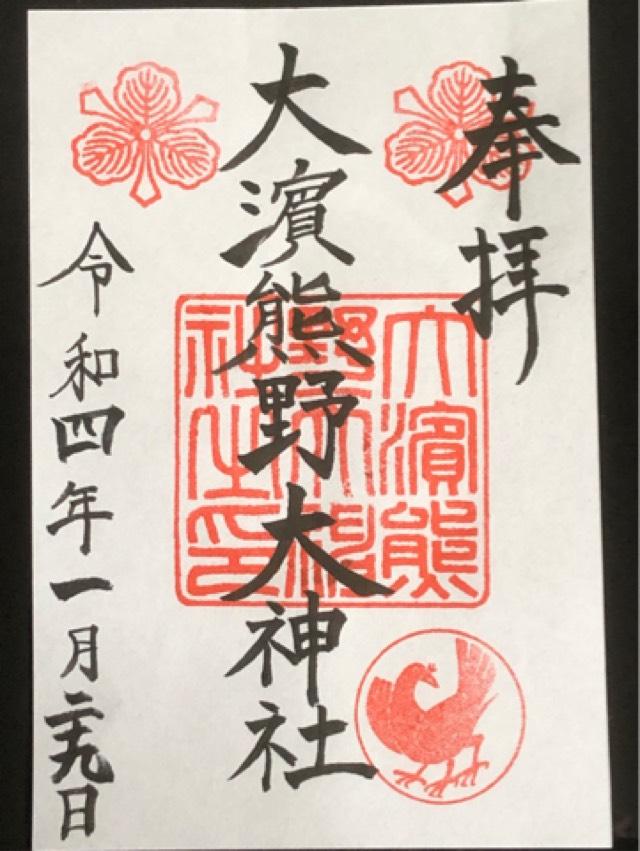 奉拝
大濱熊野大神社
大濱熊
野大神
社之印
令和四年一月二十九日